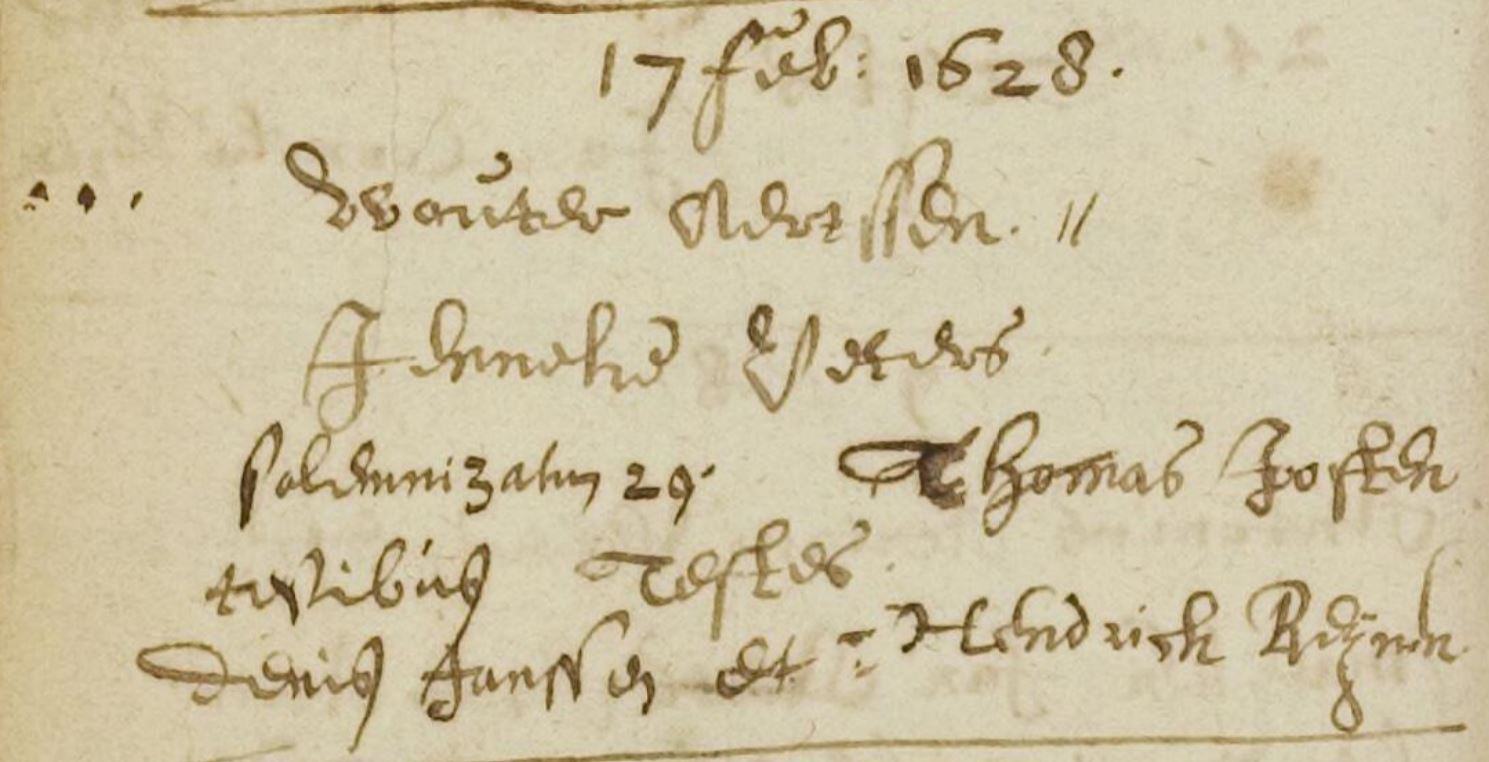 17 feb: 1628.
Wouter Aertssen. //
Jenneke Peters
solemnizatum 29. Thomas Joosten
testibus Testes
Denis Janssen et Hendrick Reijnen